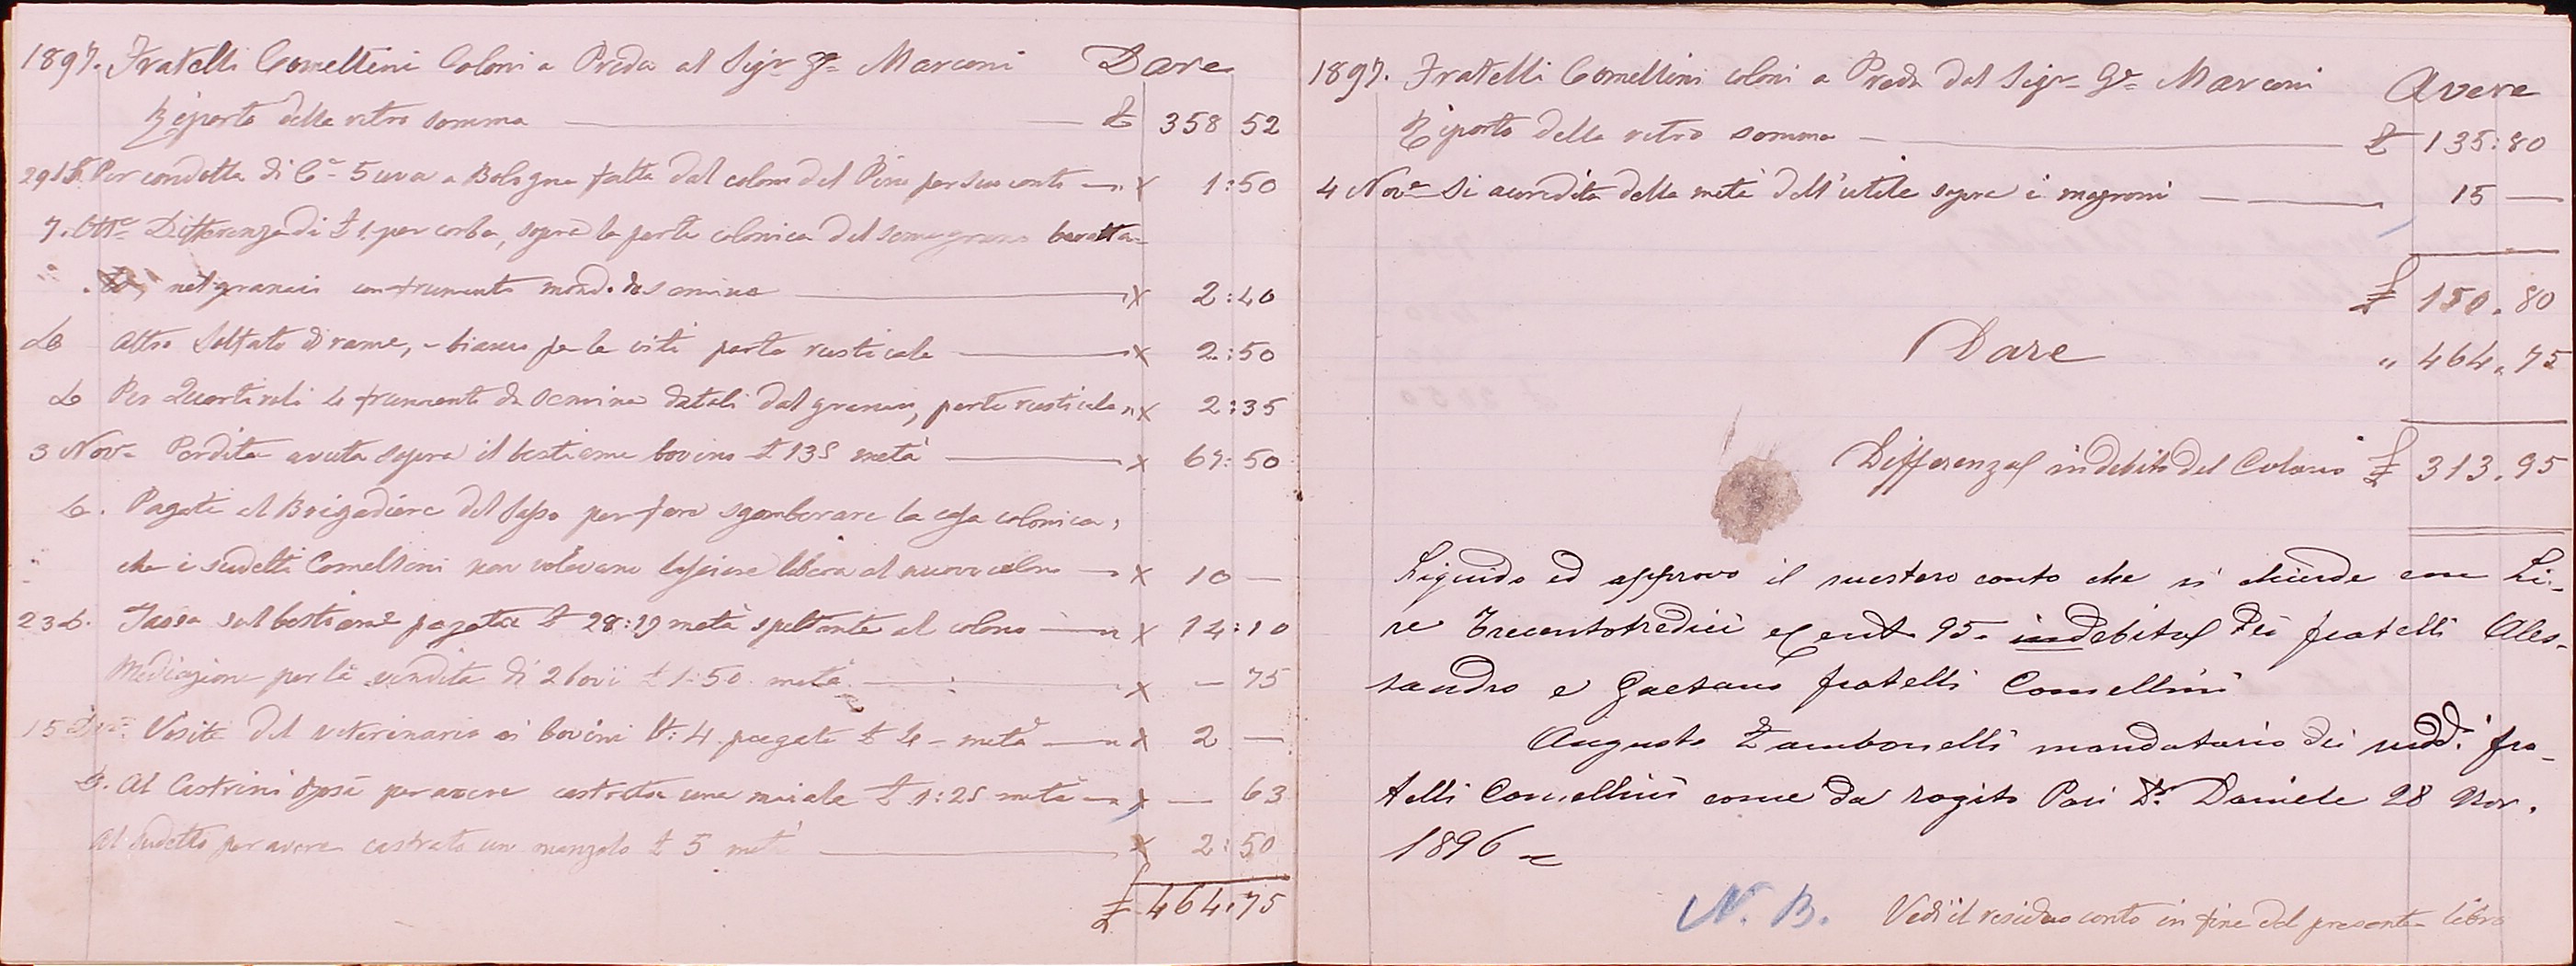 1897. Fratelli Comellini Coloni a Preda al Sigr Ge Marconi Dare
Riporto della retro somma £ 358 52
29 Per condotta di Ce 5 uva a Bologna fatta dal colono del Pino per suo conto x 1:50
7. Otte Differenza di £ 1. per corba, sopra la parte colonica del baratta-
nel granaio con frumento mond. da semina x 2:40
Do Altro Solfato di rame, bianco per le viti parte rusticale x 2:50
Do Per Quartiroli 4 frumento da semina datoli dal granaio, parte rusticale x 2:35
3 Nove Perdita avuta sopra il bestiame bovino £ 135 metà x 67:50
Do. Pagati al Brigadiere del Sasso per fare sgomberare la casa colonica,
che i sudetti Comellini non volevano lasciare libera al nuovo colono x 10 —
23 Do. Tassa sul bestiame pagata £ 28:19 metà spettante al colono x 14:10
Mediazione per la vendita di 2 bovi £ 1:50 metà x — 75
15 Visite del veterinario ai bovini N: 4 pagate £ 4 – metà x 2 —
Do. Al Castrini per avere castrato una maiale £ 1:25 metà x — 63
Al sudetto per avere castrato un manzolo £ 5 metà x 2:50
£ 464.75
1897. Fratelli Comellini coloni a Preda dal Sigr Ge Marconi Avere
Riporto della retro somma £ 135:80
4 Nove Si acredita della metà dell'utile sopra i magroni 15 —
£ 150.80
Dare " 464.75
Differenza in debito del Colono £ 313.95
Liquido ed approvo il suesteso conto che si chiude con Li-
re Trecentotredici e Cent. 95. in debito dei fratelli Ales-
sandro e Gaetano fratelli Comellini
Augusto Zambonelli mandatario dei sudd.i fra-
telli Comellini come da rogito Pasi Dr. Daniele 28 Nov.
1896
N. B. Vedi il residuo conto in fine del presente libro